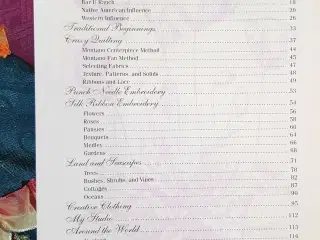 Bar E Ranch 18
Native American Influence 26
Western Influence 28
Traditional Beginnings 33
Crazy Quilting 37
Montano Centerpiece Method 44
Montano Fan Method 45
Selecting Fabrics 47
Texture, Patterns, and Solids 48
Ribbons and Lace 49
Punch Needle Embroidery 53
Silk Ribbon Embroidery 54
Flowers 56
Roses 58
Pansies 60
Bouquets 64
Medley 66
Gardens 68
Land and Seascapes 71
Trees 78
Bushes, Shrubs, and Vines 82
Cottages 87
Oceans 92
Creative Clothing 95
My Studio 112
Around the World 114